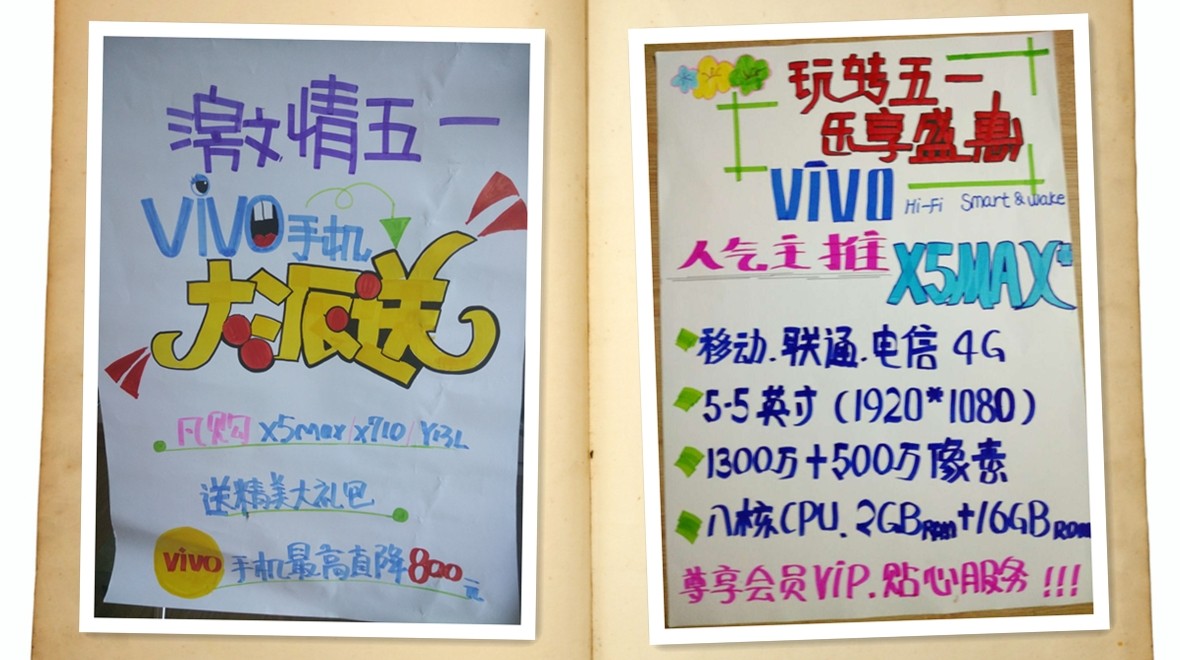 激情五一
vivo手机
大派送
凡购X5max/X710/Y13L
送精美大礼包
vivo手机最高直降800元
玩转五一
乐享盛惠
vivo Hi-Fi Smart & wake
人气主推 X5MAX
移动.联通.电信 4G
5.5英寸(1920*1080)
1300万+500万像素
八核CPU.2GBRam+16GBRom
尊享会员ViP.贴心服务!!!